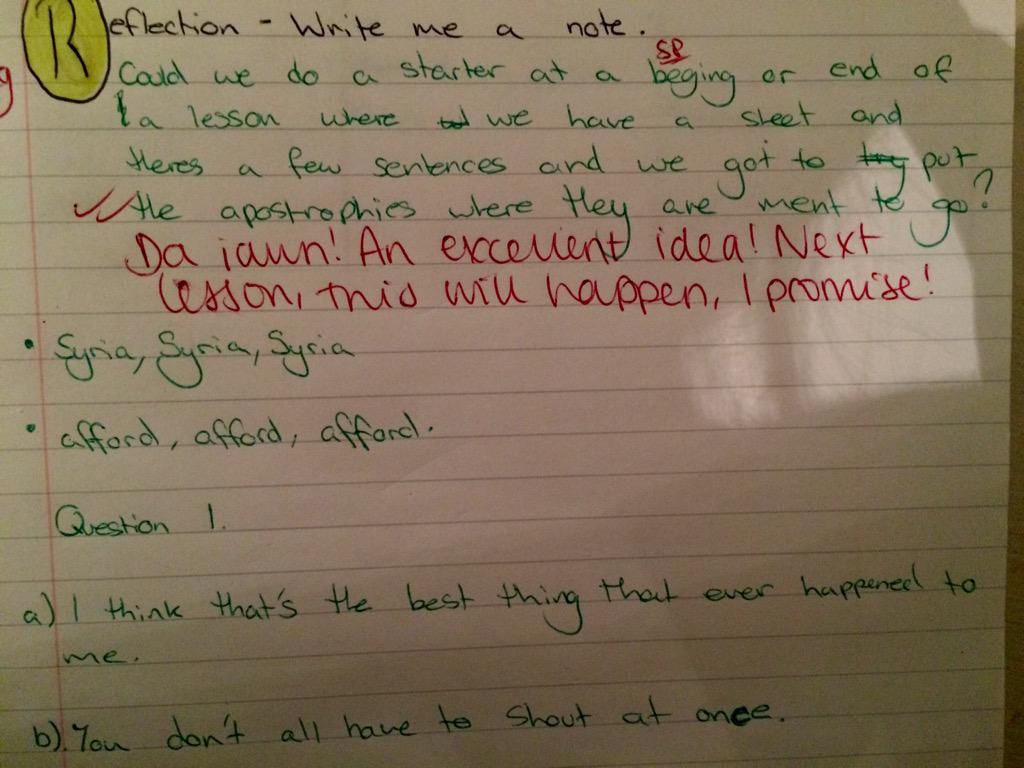 Reflection - Write me a note.
SP
Could we do a starter at a beging or end of
a lesson where we have a sheet and
theres a few sentences and we got to try put
the apostrophies where they are ment to go?
Da iawn! An excellent idea! Next
lesson, this will happen, I promise!
• Syria, Syria, Syria
• afford, afford, afford.
Question 1.
a) I think that's the best thing that ever happened to
me.
b). You don't all have to shout at once.